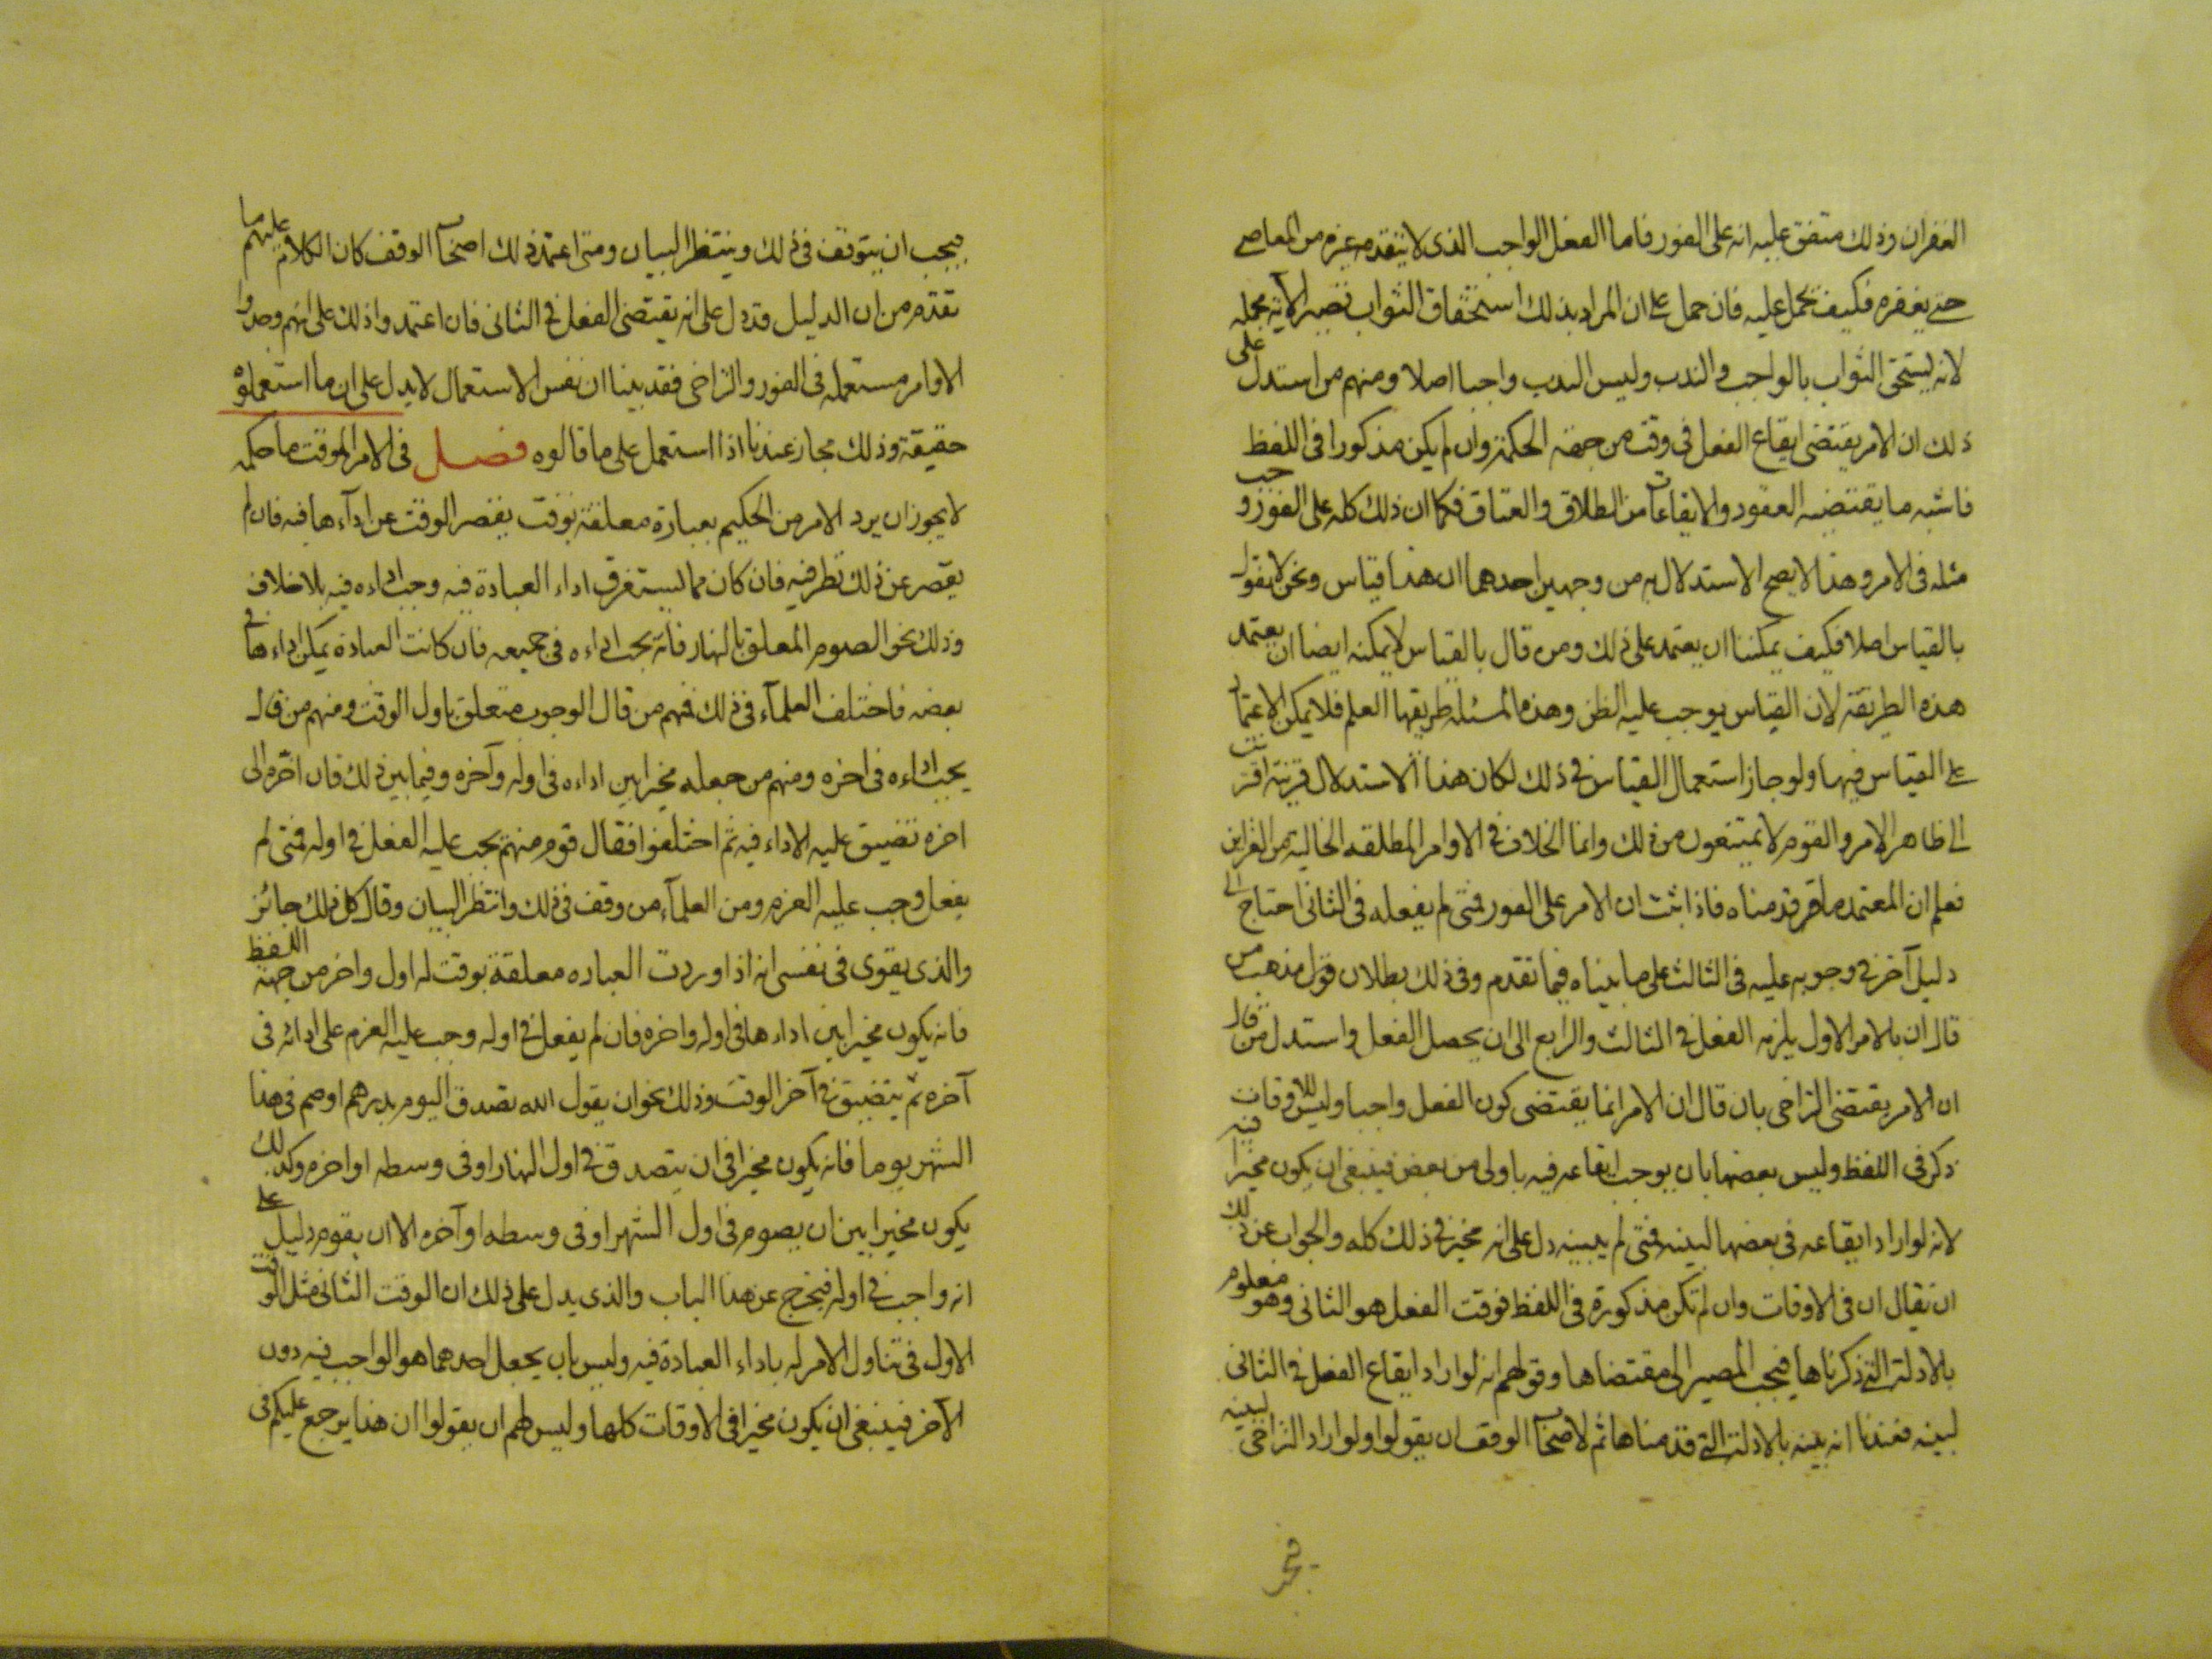 الغفران وذلك متفق عليه انه على الفور فاما الفعل الواجب الذى لا يتقدمه عزم من المعاصى
حتى يغفره فكيف يحمل عليه فان حمل على ان المراد بذلك استحقاق الثواب تصير الآية مجمله
لانه يستحق الثواب بالواجب والندب وليس الندب واجبا اصلا ومنهم من استدل على
ذلك ان الامر يقتضى ايقاع الفعل فى وقت من جهة الحكمة وان لم يكن مذكورا فى اللفظ
فاشبه ما يقتضيه العقود والايقاعات من الطلاق والعتاق فكما ان ذلك كله على الفور وجب
مثله فى الامر وهذا لا يصح الاستدلال به من وجهين احدهما ان هذا قياس ونحن لا نقول
بالقياس اصلا فكيف يمكننا ان يعتمد على ذلك ومن قال بالقياس لا يمكنه ايضا ان يعتمد
هذه الطريقة لان القياس يوجب عليه الظن وهذه المسئلة طريقها العلم فلا يمكن الاعتماد
على القياس فيها ولو جاز استعمال القياس فى ذلك لكان هذا الاستدلال قرينة اقترنت
الى ظاهر الامر والقوم لا يمتنعون من ذلك وانما الخلاف فى الاوامر المطلقه الخالية من القراين
فعلم ان المعتمد ما قد قدمناه فاذا ثبت ان الامر على الفور فمتى لم يفعله فى الثانى احتاج الى
دليل آخر فى وجوبه عليه فى الثالث على ما بيناه فيما تقدم وفى ذلك بطلان قول مذهب من
قال ان بالامر الاول يلزمه الفعل فى الثالث والرابع الى ان يحصل الفعل واستدل من قال
ان الامر يقتضى التراخى بان قال ان الامر انما يقتضى كون الفعل واجبا وليس للاوقات
ذكر فى اللفظ وليس بعضها بان يوجب ايقاعه فيه باولى من بعض فينبغى ان يكون مخيرا فيه
لانه لو اراد ايقاعه فى بعضها لبينه فمتى لم يبينه دل على انه مخير فى ذلك كله والجواب عن ذلك
ان نقال ان فى الاوقات وان لم تكن مذكورة فى اللفظ فوقت الفعل هو الثانى وهو معلوم
بالادلة التى ذكرناها فيجب المصير الى مقتضاها وقولهم انه لو اراد ايقاع الفعل فى الثانى
لبينه فعندنا انه بينه بالادلة التى قدمناها ثم لاصحاب الوقف ان يقولوا ولو اراد التراخى لبينه
فيجب
فيجب ان يتوقف فى ذلك وينتظر البيان ومتى اعتمد ذلك اصحاب الوقف كان الكلام عليهم ما
تقدم من ان الدليل قد دل على انه يقتضى الفعل فى الثانى فان اعتمدوا ذلك على انهم وجدوا
الاوامر مستعمله فى الفور والتراخى فقد بينا ان نفس الاستعمال لا يدل على ان ما استعملوه
حقيقة وذلك مجاز عندنا اذا استعمل على ما قالوه فصل فى الامر الموقت ما حكمه
لا يجوز ان يرد الامر من الحكيم بعبارة معلقة بوقت يقصر الوقت عن اداءها فيه فان لم
يقصر عن ذلك نظر فيه فان كان مما يستغرق اداء العبادة فيه وجب اداءه فيه بلا خلاف
وذلك نحو الصوم المعلق بالنهار فانه يجب اداءه فى جميعه فان كانت العبادة يمكن اداءها فى
بعضه فاختلف العلمآء فى ذلك فمنهم من قال الوجوب متعلق باول الوقت ومنهم من قال
يجب اداءه فى اخره ومنهم من جعله مخيرا بين اداءه فى اوله وآخره وفيما بين ذلك فان اخره الى
اخره تضيق عليه الاداء فيه ثم اختلفوا فقال قوم منهم يجب عليه الفعل فى اوله فمتى لم
يفعل وجب عليه العزم ومن العلمآء من وقف فى ذلك وانتظر البيان وقال كل ذلك جائز
والذى يقوى فى نفسى انه اذا وردت العباده معلقة بوقت له اول واخر من جهة اللفظ
فانه يكون مخيرا بين اداءها فى اوله واخره فان لم يفعل فى اوله وجب عليه العزم على ادائه فى
آخره ثم يتضيق فى آخر الوقت وذلك نحو ان يقول الله تصدق اليوم بدرهم او صم فى هذا
الشهر يوما فانه يكون مخيرا فى ان يتصدق فى اول النهار او فى وسطه او اخره وكذلك
يكون مخيرا بين ان يصوم فى اول الشهر او فى وسطه او آخره الا ان يقوم دليل على
انه واجب فى اوله فيخرج عن هذا الباب والذى يدل على ذلك ان الوقت الثانى مثل الوقت
الاول فى تناول الامر له باداء العبادة فيه وليس بان يجعل احدهما هو الواجب فيه دون
الآخر فينبغى ان يكون مخيرا فى الاوقات كلها وليس لهم ان يقولوا ان هذا يرجع عليكم فى